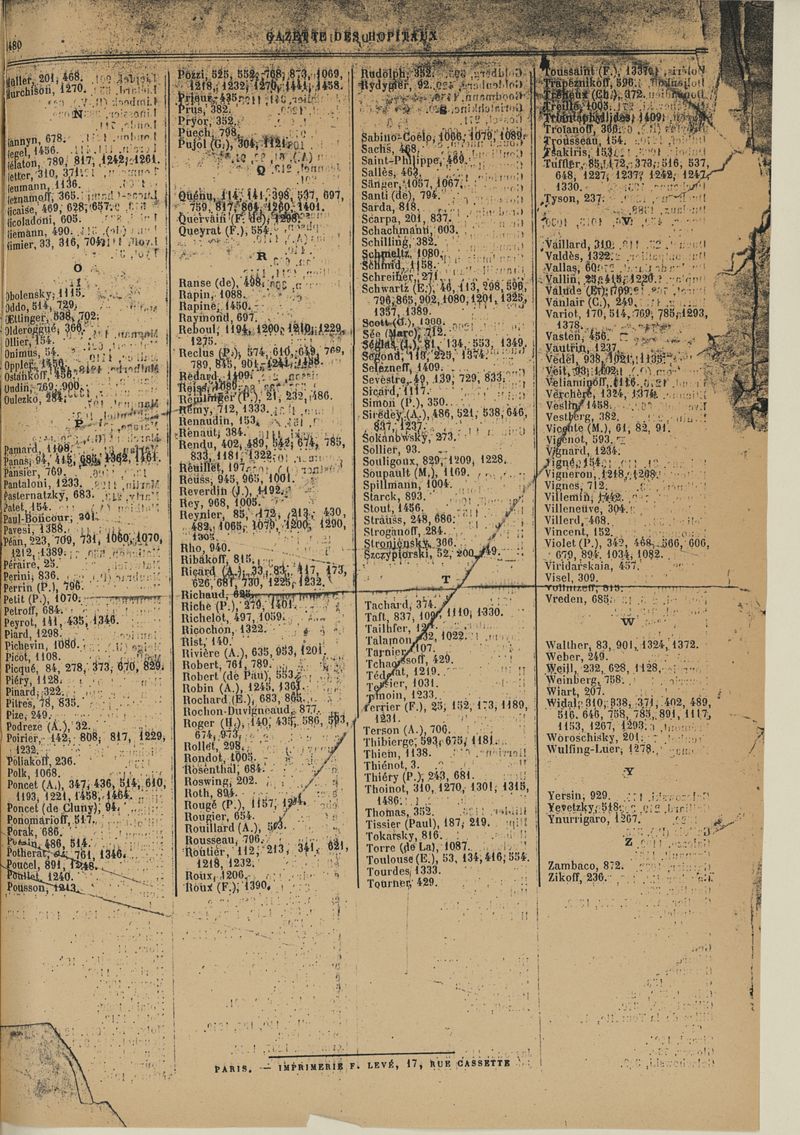 480
GAZETTE DES HOPITAUX
Murchison, 1270.
N
Nannyn, 678.
Negel, 1456.
Nélaton, 789, 817, 1242, 1261.
Netter, 310, 371.
Neumann, 1136.
Nicaise, 469, 628, 657.
Nicoladoni, 605.
Niemann, 490.
Nimier, 33, 316, 704.
O
Obolensky, 1115.
Oddo, 514, 729.
Œttinger, 538, 702.
Olderoggué, 366.
Ollier, 154.
Onimus, 54.
Oudin, 769, 900.
Oulezko, 284.
P
Pamard, 1108.
Pansier, 769.
Pantaloni, 1233.
Pasternatzky, 683.
Patet, 154.
Paul-Boncour, 301.
Pavesi, 1388.
Péan, 223, 709, 731, 1060, 1070,
1212, 1389.
Péraire, 25.
Perini, 836.
Perrin (P.), 796.
Petit (P.), 1070.
Petroff, 684.
Peyrot, 141, 435, 1346.
Piard, 1298.
Pichevin, 1080.
Picot, 1108.
Picqué, 84, 278, 373, 670, 829.
Piéry, 1128.
Pinard, 322.
Pitres, 78, 835.
Pize, 249.
Podreze (A.), 32.
Poirier, 142, 808, 817, 1229,
1232.
Poliakoff, 236.
Polk, 1068.
Poncet (A.), 347, 436, 514, 610,
1193, 1221, 1458, 1464.
Poncet (de Cluny), 94.
Ponomarioff, 517.
Porak, 686.
Potain, 486, 514.
Poucel, 891, 1248.
Pouillet, 1240.
Pousson, 1213.
Pozzi, 525, 552, 768, 873, 1069,
1218, 1232, 1270, 1441, 1458.
Prieur, 435.
Prus, 382.
Pryor, 352.
Puech, 798.
Pujol (G.), 304, 1121.
Q
Quénu, 114, 141, 398, 537, 697,
759, 817, 864, 1260, 1401.
Quervain (F. de), 1298.
Queyrat (F.), 554.
R
Ranse (de), 498.
Rapin, 1088.
Rapine, 1450.
Raymond, 697.
Reboul, 1194, 1200, 1210, 1229,
1275.
Reclus (P.), 574, 610, 649, 769,
Redard, 1409.
Remlinger (P.), 21, 232, 486.
Remy, 712, 1333.
Renaudin, 153.
Renaut, 384.
Rendu, 402, 489, 542, 674, 785,
833, 1181, 1322.
Reuillet, 197.
Reuss, 945, 965, 1001.
Reverdin (J.), 1192.
Rey, 968, 1005.
Reynier, 85, 172, 213, 430,
482, 1065, 1079, 1200, 1290,
1305.
Rho, 940.
Ribakoff, 815.
Ricard (A.), 33, 83, 117, 173,
626, 681, 730, 1225, 1232.
Richaud, 625.
Riche (P.), 279, 1401.
Richelot, 497, 1059.
Ricochon, 1322.
Rist, 140.
Rivière (A.), 635, 953, 1201.
Robert, 761, 789.
Robert (de Pau), 553.
Robin (A.), 1245, 1361.
Rochard (E.), 683, 865.
Rochon-Duvigneaud, 877.
Roger (H.), 140, 435, 586, 593,
674, 973.
Rollet, 298.
Rondot, 1005.
Rosenthal, 684.
Roswing, 202.
Roth, 894.
Rougé (P.), 1157, 1294.
Rougier, 654.
Rouillard (A.), 593.
Rousseau, 796.
Routier, 112, 213, 341, 621,
1218, 1232.
Roux, 1206.
Roux (F.), 1390.
Rudolph, 352.
Rydygier, 92.
S
Sabino-Coelo, 1066, 1079, 1089.
Sachs, 468.
Saint-Philippe, 469.
Sallès, 463.
Sänger, 1057, 1067.
Santi (de), 794.
Sarda, 818.
Scarpa, 201, 837.
Schachmann, 603.
Schilling, 382.
Schmeltz, 1080.
Schmid, 1158.
Schreiber, 271.
Schwartz (E.), 46, 113, 298, 596,
796, 865, 902, 1080, 1201, 1325,
1337, 1389.
Scott (G.), 1300.
Sée (Marc), 712.
Séglas (J.), 81, 134, 553, 1349.
Segond, 115, 225, 1374.
Selezneff, 1409.
Sevestre, 49, 139, 729, 833.
Sicard, 1117.
Simon (P.), 350.
Siredey (A.), 486, 521, 538, 646,
837, 1237.
Sokanowsky, 273.
Sollier, 93.
Souligoux, 829, 1209, 1228.
Soupault (M.), 1169.
Spillmann, 1004.
Starck, 893.
Stout, 1456.
Strauss, 248, 686.
Stroganoff, 284.
Stronjensky, 366.
Szczypiorski, 52, 200, 249.
T
Tachard, 374.
Taft, 837, 109, 1110, 1330.
Tailhfer,
Talamon, 32, 1022.
Tarnier, 107.
Tchaoussoff, 429.
Tédenat, 1219.
Terrier (F.), 25, 152, 173, 1189,
1231.
Terson (A.), 706.
Thibierge, 593, 675, 1181.
Thiem, 1138.
Thiénot, 3.
Thiéry (P.), 243, 681.
Thoinot, 310, 1270, 1301, 1315,
1486.
Thomas, 352.
Tissier (Paul), 187, 219.
Tokarsky, 816.
Torre (de La), 1087.
Toulouse (E.), 53, 134, 416, 554.
Tourdes, 1333.
Tourner, 429.
Toussaint (F.), 1337.
Trapéznikoff, 596.
Troïanoff, 366.
Trousseau, 154.
Tsakiris, 153.
Tuffier, 85, 172, 373, 516, 537,
648, 1227, 1237, 1242, 1247,
1330.
Tyson, 237.
V
Vaillard, 310.
Valdès, 1322.
Vallas, 60.
Vallin, 25, 415, 1220.
Valude (E.), 799.
Vanlair (C.), 249.
Variot, 170, 514, 769, 785, 1293,
1378.
Vasten, 456.
Vautrin, 1237.
Vedel, 938, 1021, 1135.
Veit, 33, 1402.
Veliaminoff, 1116.
Verchère, 1324, 1374.
Veslin, 1458.
Vestberg, 382.
Vicente (M.), 61, 82, 91.
Vigenot, 593.
Vignard, 1234.
Vigné, 154.
Vigneron, 1218, 1268.
Vignes, 712.
Villemin, 1442.
Villeneuve, 304.
Villerd, 468.
Vincent, 152.
Violet (P.), 342, 468, 566, 606,
679, 894, 1034, 1082.
Viridarskaia, 457.
Visel, 309.
Vreden, 685.
W
Walther, 83, 901, 1324, 1372.
Weber, 249.
Weill, 232, 628, 1128.
Weinberg, 758.
Wiart, 207.
Widal, 310, 338, 371, 402, 489,
516, 646, 758, 785, 891, 1117,
1153, 1267, 1293.
Woroschisky, 201.
Wulfing-Luer, 1278.
Y
Yersin, 929.
Yevetzky, 518.
Ynurrigaro, 1267.
Z
Zambaco, 872.
Zikoff, 236.
PARIS. — IMPRIMERIE F. LEVÉ, 17, RUE CASSETTE